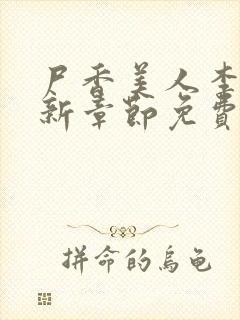 尸香美人李
新章節免費
拼命的烏龜